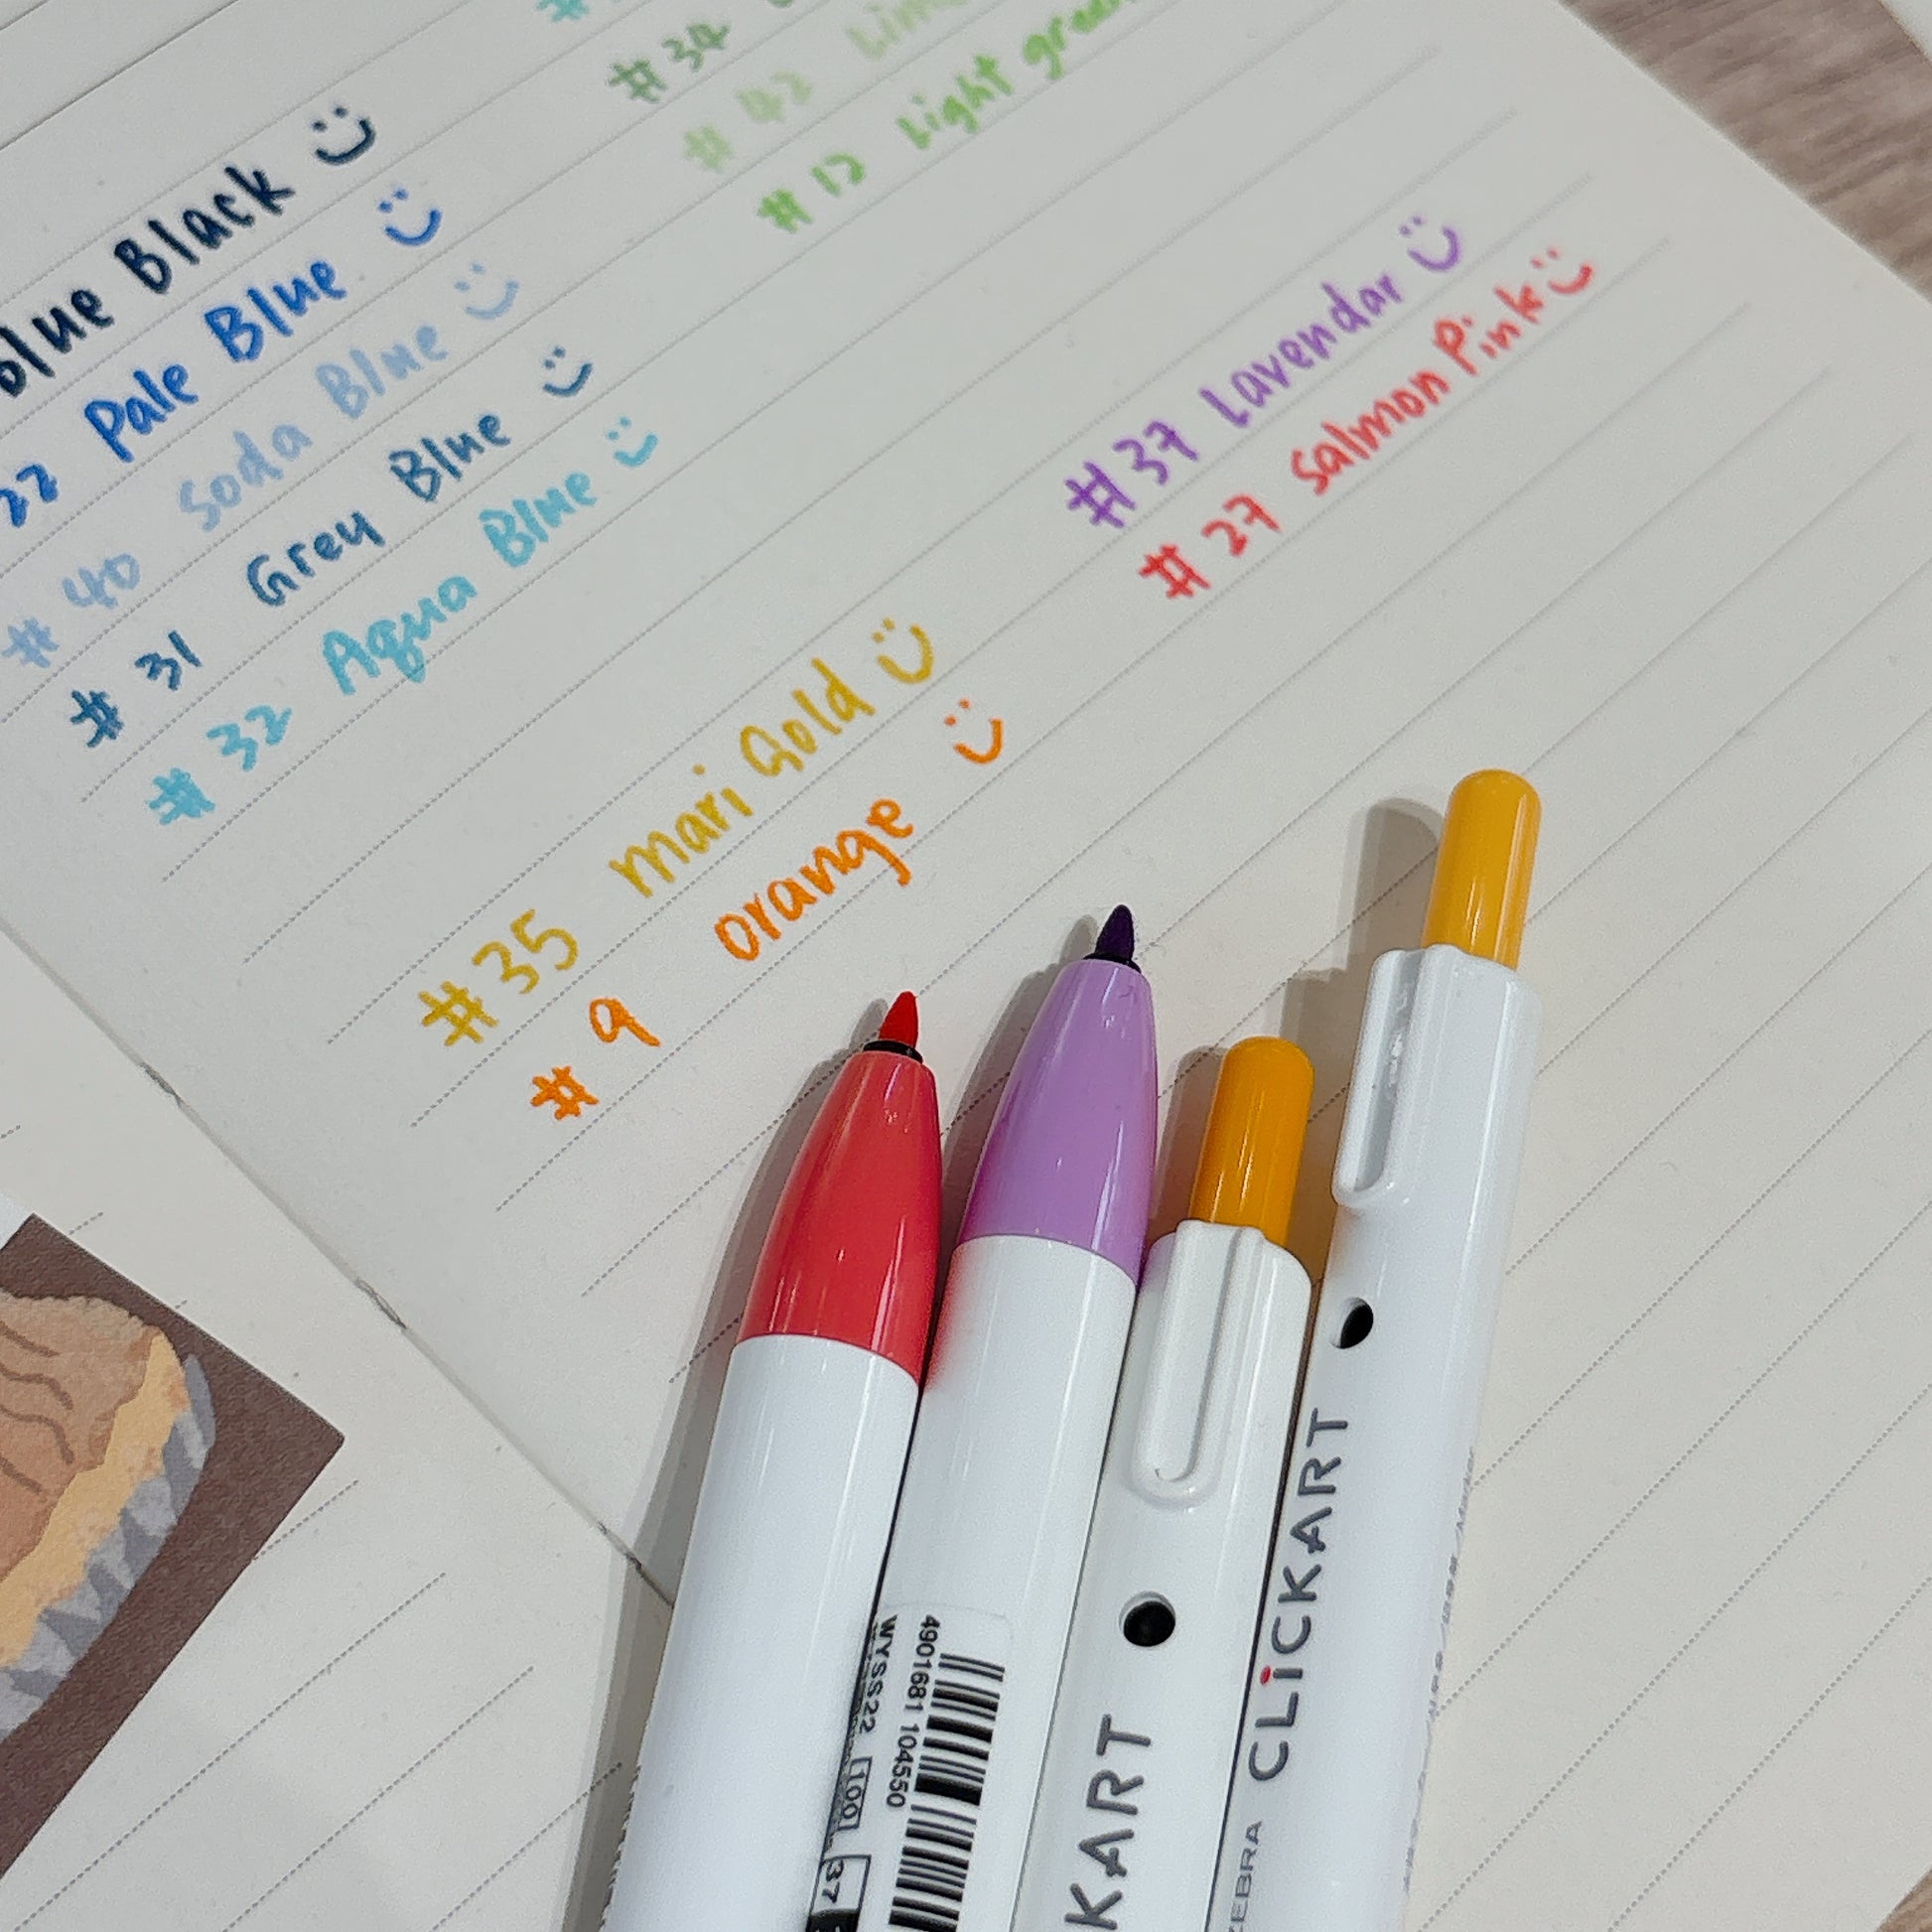 Blue Black
22 Pale Blue
# 40 Soda Blue
# 31 Grey Blue
# 32 Aqua Blue
# 34
# 42
# 12 Light green
#35 Mari Gold
# 9 orange
#37 Lavendar
# 27 Salmon Pink
4901681 104550
WYSS22 100 37
KART
ZEBRA CLiCKART